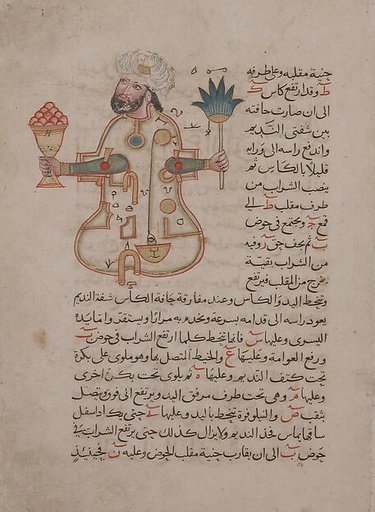 جنبة مقلبه وعلى طرفه
ط وقد ارتفع كاس ك
الى ان صارت حافته
بين شفتي النديم
واندفع راسه الى ورايه
قليلا بالكاس ثم
ينصب الشراب من
طرف مقلب ط الى
قمع ويجتمع في حوض
ثم يجف حق روفيه
من الشراب بقية
يخرج من المقلب فيرتفع
وتنحط اليد والكاس وعند مفارقة حافة الكاس شفة النديم
يعود راسه الى قدامه بسرعة ويخدم به مرارا ويستقر واما يده
اليسرى وعليها س فانها تنحط كلما ارتفع الشراب في حوض
ورفع العوامة وعليها ع والخيط المتصل بها وهو ملوى على بكرة
تحت كتف النديم وعليها ثم يلوى تحت بكرة اخرى
وعليها وهي تحت طرف مرفق اليد ويرتفع الى فوق ويتصل
بثقب ص والنيلوفرة تنحط باليد وعليها حتى يكاد اسفل
ساقها يماس فخذ النديم ولا يزال كذلك حتى يرتفع الشراب في
حوض الى ان يقارب جنبة مقلب الحوض وعليه ن فحينئذ